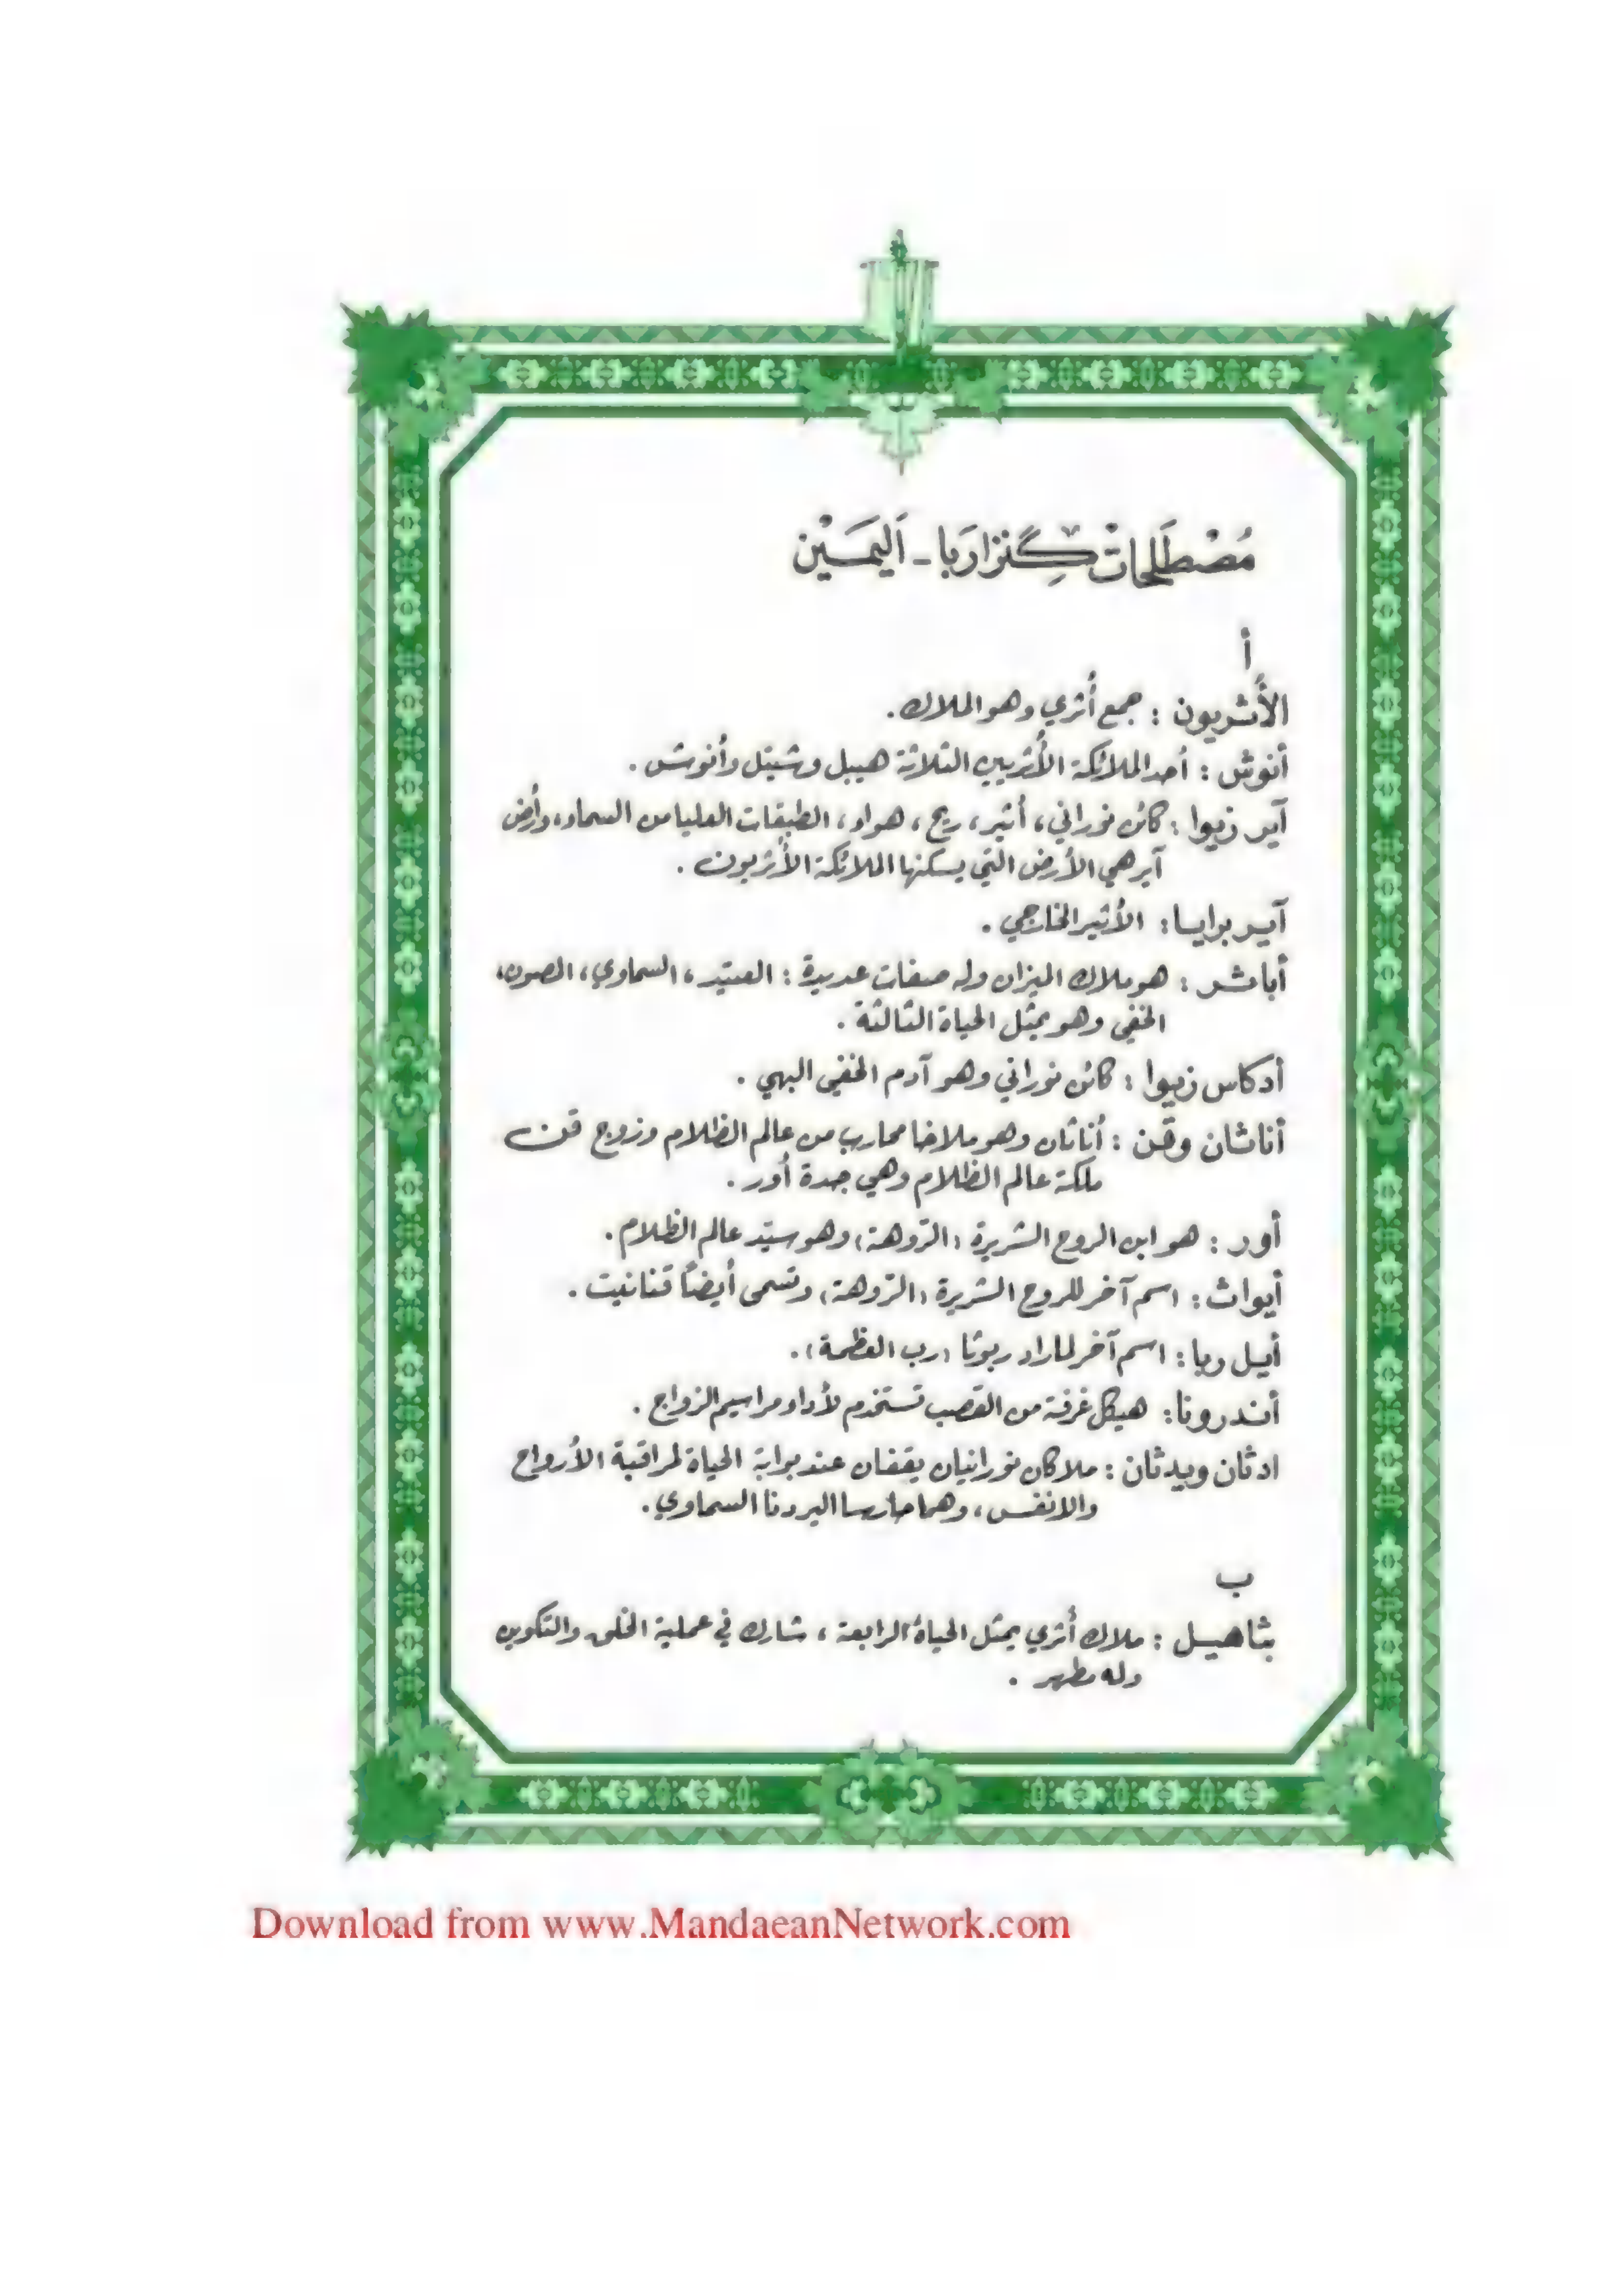 مُصْطَلَحَاتْ گِنزَا رَبا - اَليَمَـيْن
أ
الأُثريون : جمع أُثري وهو الملاك.
أنوش : أحد الملائكة الأُثريين الثلاثة هيبل وشيتل وأنوش .
آير زيوا : كائن نوراني ، أثير ، ريح ، هواء ، الطبقات العليا من السماء ، وأرض
آير هي الأرض التي يسكنها الملائكة الأثريون .
آير برايا : الأثير الخارجي .
أباثر : هو ملاك الميزان وله صفات عديدة : العتيد ، السماوي ، المصون،
الخفي وهو يمثل الحياة الثالثة .
أدكاس زيوا : كائن نوراني وهو آدم الخفي البهي .
أناثان وقن : أناثان وهو ملاخا محارب من عالم الظلام وزوج قن
ملكة عالم الظلام وهي جدة أور .
أور : هو ابن الروح الشريرة (الرّوهة) وهو سيّد عالم الظلام.
أيواث : اسم آخر للروح الشريرة (الرّوهة) وتسمى أيضاً قنانيت .
أيل ربا : اسم آخر لماراد ربوثا (رب العظمة) .
أندرونا : هيكل غرفة من القصب تستخدم لأداء مراسيم الزواج .
ادثان ويدثان : ملاكان نورانيان يقفان عند بوابة الحياة لمراقبة الأرواح
والانفس ، وهما حارسا اليردنا السماوي.
ب
بثاهيل : ملاك أُثري يمثل الحياة الرابعة ، شارك في عملية الخلق والتكوين
وله مطهر .
Download from www.MandaeanNetwork.com